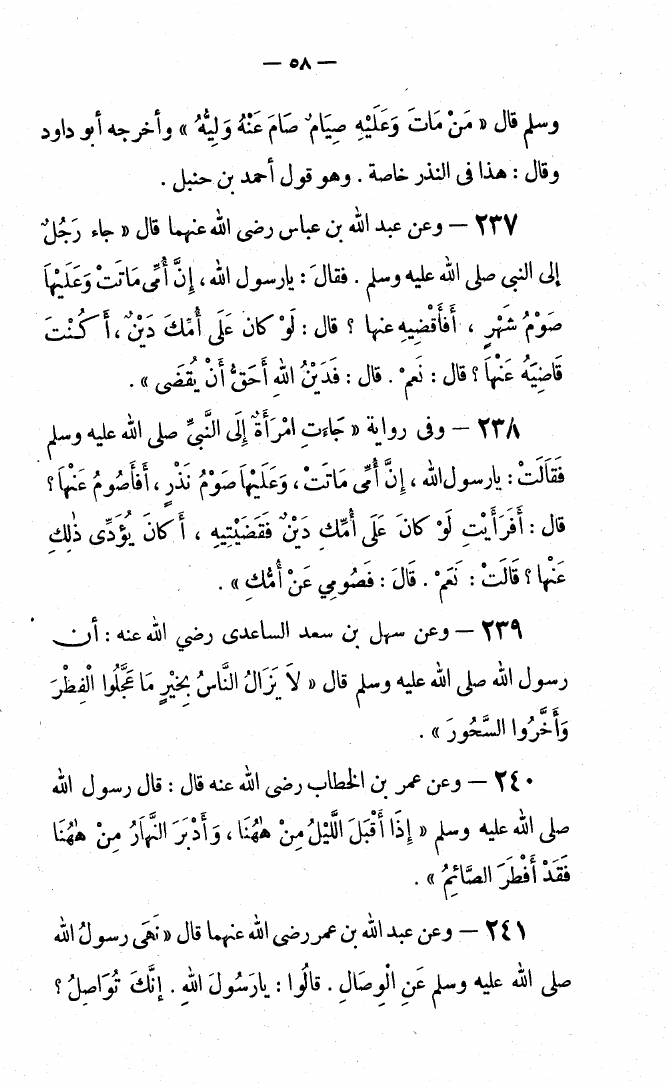 — ٥٨ —
وسلم قال « مَنْ مَاتَ وَعَلَيْهِ صِيَامٌ صَامَ عَنْهُ وَلِيُّهُ » وأخرجه أبو داود
وقال : هذا فى النذر خاصة . وهو قول أحمد بن حنبل .
٢٣٧ — وعن عبد الله بن عباس رضى الله عنهما قال « جاء رَجُلٌ
إلى النبي صلى الله عليه وسلم . فقالَ : يارسول الله ، إِنَّ أُمِّى مَاتَتْ وَعَلَيْهَا
صَوْمُ شَهْرٍ ، أَفَأَقْضِيهِ عنها ؟ قال : لَوْ كانَ عَلَى أُمِّكَ دَيْنٌ ، أَكُنْتَ
قَاضِيَهُ عَنْهَا ؟ قال : نَعَمْ . قال : فَدَيْنُ اللهِ أَحَقُّ أَنْ يُقْضَى » .
٢٣٨ — وفى رواية « جَاءَتِ امْرَأَةٌ إِلَى النَّبِيِّ صلى الله عليه وسلم
فَقَالَتْ : يارسول الله ، إِنَّ أُمِّى مَاتَتْ ، وَعَلَيْهَا صَوْمُ نَذْرٍ ، أَفَأَصُومُ عَنْهَا ؟
قال : أَفَرَأَيْتِ لَوْ كانَ عَلَى أُمِّكِ دَيْنٌ فَقَضَيْتِيهِ ، أَكانَ يُؤَدِّى ذٰلِكِ
عَنْها ؟ قَالَتْ : نَعَمْ . قَالَ : فَصُومِي عَنْ أُمِّكِ » .
٢٣٩ — وعن سهل بن سعد الساعدى رضي الله عنه : أن
رسول الله صلى الله عليه وسلم قال « لاَ يَزَالُ النَّاسُ بِخَيْرٍ مَا عَجَّلُوا الْفِطْرَ
وَأَخَّرُوا السَّحُورَ » .
٢٤٠ — وعن عمر بن الخطاب رضى الله عنه قال : قال رسول الله
صلى الله عليه وسلم « إِذَا أَقْبَلَ اللَّيْلُ مِنْ هٰهُنَا ، وَأَدْبَرَ النَّهَارُ مِنْ هٰهُنَا
فَقَدْ أَفْطَرَ الصَّائِمُ » .
٢٤١ — وعن عبد الله بن عمر رضى الله عنهما قال « نَهَى رسولُ الله
صلى الله عليه وسلم عَنِ الْوِصَالِ . قالُوا : يارَسُولَ اللهِ . إنَّكَ تُوَاصِلُ ؟